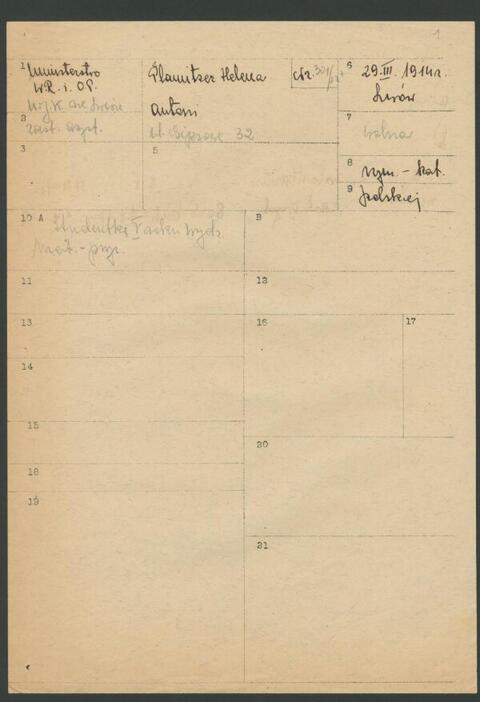 1
1 Ministerstwo
W.R. i O.P.
U.J.K. we Lwowie
zast. asyst.
Planitzer Helena
Antoni
ul. 32
Nr.
6 29. III. 1914 r.
Lwów
2
7 wolna
3
5
8 rzym. - kat.
9 polskiej
10 A Studentka V roku wydz.
mat. - przyr.
B
11
12
13
16
17
14
15
20
18
19
21